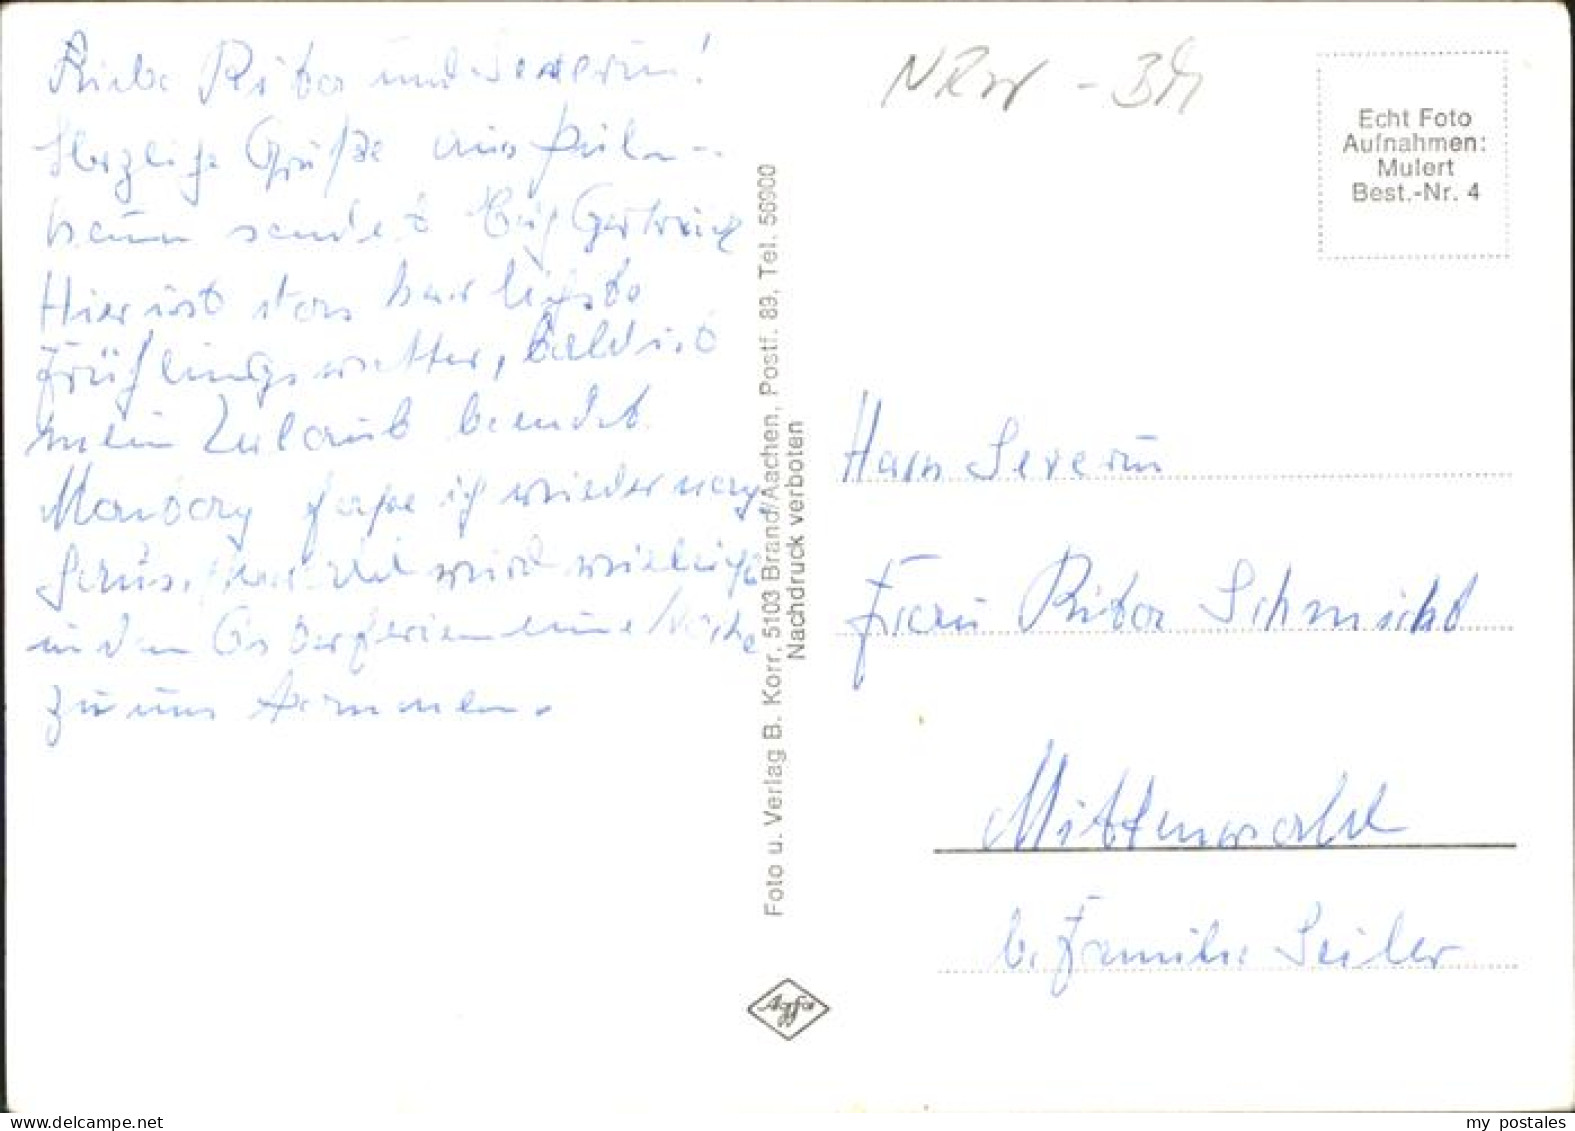 Liebe Rita und Severin!
Herzliche Grüße aus
sendet Euch Gertrud
Hier ist das herrlichste
Frühlingswetter, bald ist
mein Urlaub beendet.
Montag fahre ich wieder nach
wird vielleicht
in den Osterferien eine Woche
zu uns kommen.
NRW -
Echt Foto
Aufnahmen:
Mulert
Best.-Nr. 4
Foto u. Verlag B. Korr, 5103 Brand/Aachen, Postf. 89, Tel. 56900
Nachdruck verboten
Agfa
Harn Severin
Frau Rita Schmicht
Mittenwald
b. Familie Seiler
my postales